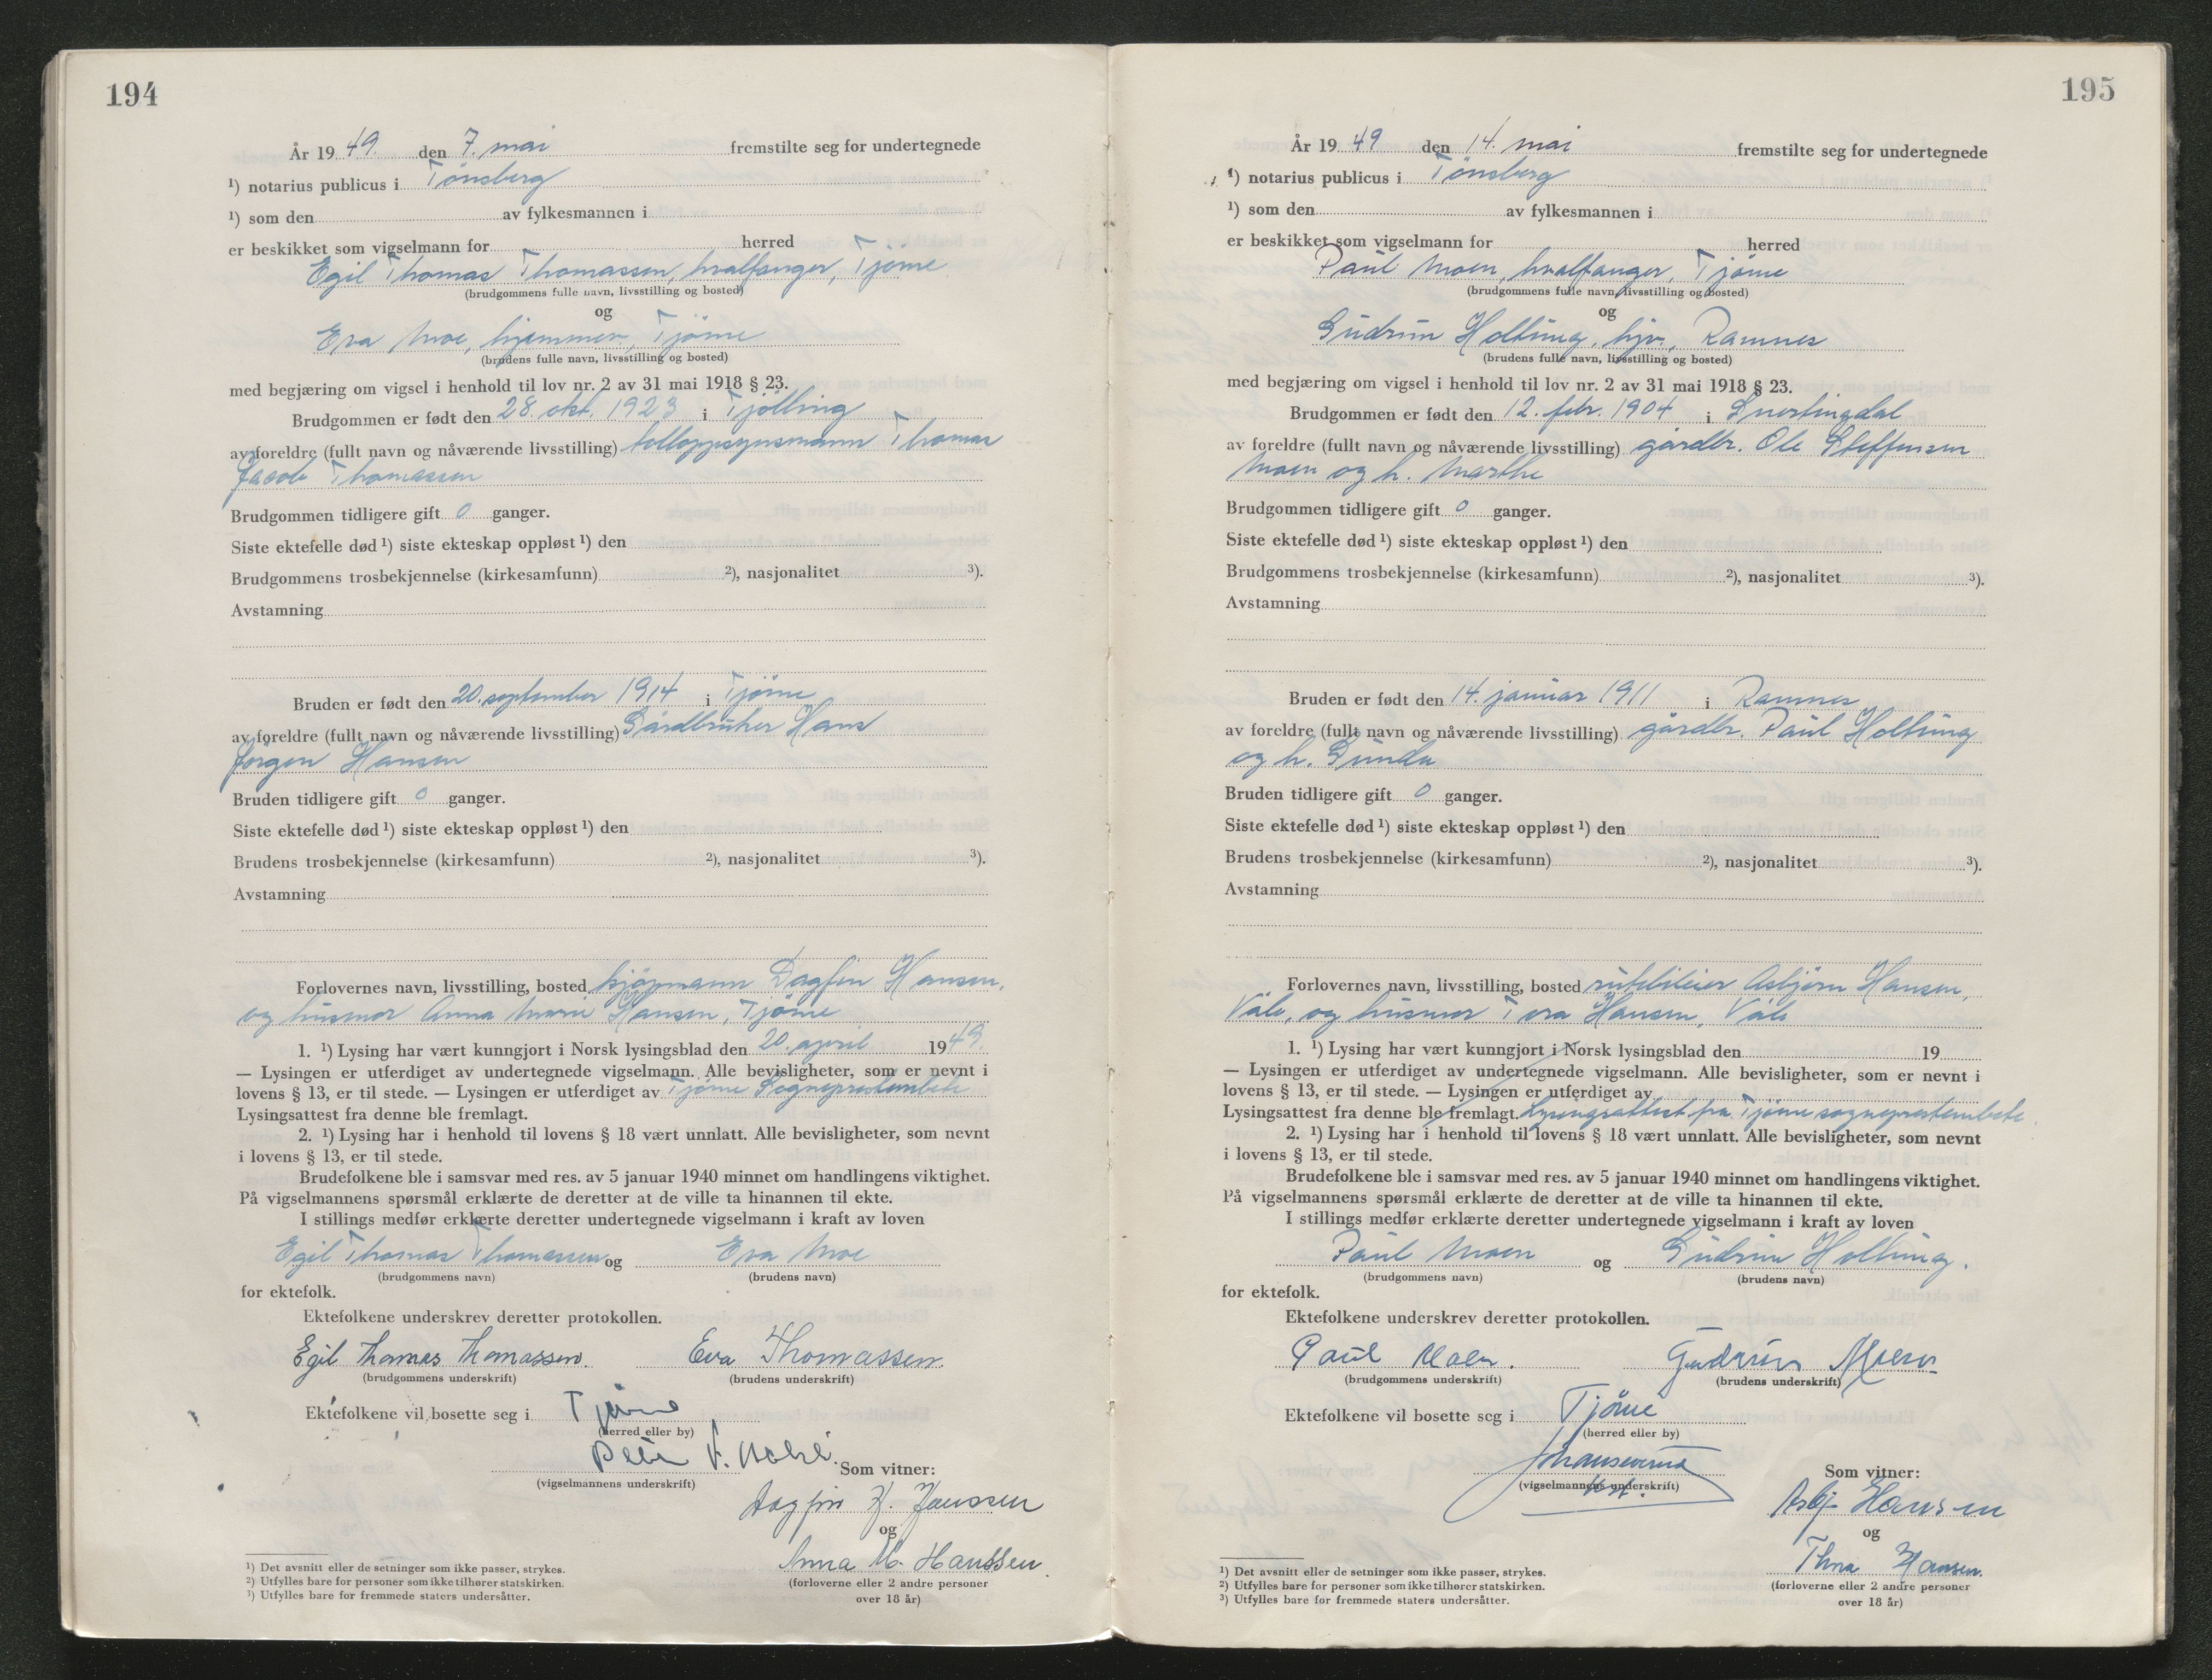 194
År 1949. den 7. mai fremstilte seg for undertegnede
¹) notarius publicus i Tönsberg
¹) som den av fylkesmannen i
er beskikket som vigselmann for herred
Egil Thomas Thomassen, hvalfanger, Tjöme
(brudgommens fulle navn, livsstilling og bosted)
og
Eva Moe, hjemmev, Tjöme
(brudens fulle navn, livsstilling og bosted)
med begjæring om vigsel i henhold til lov nr. 2 av 31 mai 1918 § 23.
Brudgommen er født den 28. okt. 1923 i Tjölling
av foreldre (fullt navn og nåværende livsstilling) tolloppsynsmann Thomas
Jacob Thomassen
Brudgommen tidligere gift 0 ganger.
Siste ektefelle død ¹) siste ekteskap oppløst ¹) den
Brudgommens trosbekjennelse (kirkesamfunn) ²), nasjonalitet ³).
Avstamning
Bruden er født den 20. september 1914 i Tjöme
av foreldre (fullt navn og nåværende livsstilling) Gårdbruker Hans
Jörgen Hansen
Bruden tidligere gift 0 ganger.
Siste ektefelle død ¹) siste ekteskap oppløst ¹) den
Brudens trosbekjennelse (kirkesamfunn) ²), nasjonalitet ³).
Avstamning
Forlovernes navn, livsstilling, bosted kjöpmann Dagfin Hansen,
og husmor Anna Marie Hansen, Tjöme
1. ¹) Lysing har vært kunngjort i Norsk lysingsblad den 20. april 1949.
— Lysingen er utferdiget av undertegnede vigselmann. Alle bevisligheter, som er nevnt i
lovens § 13, er til stede. — Lysingen er utferdiget av Tjöme Sogneprestembete
Lysingsattest fra denne ble fremlagt.
2. ¹) Lysing har i henhold til lovens § 18 vært unnlatt. Alle bevisligheter, som nevnt
i lovens § 13, er til stede.
Brudefolkene ble i samsvar med res. av 5 januar 1940 minnet om handlingens viktighet.
På vigselmannens spørsmål erklærte de deretter at de ville ta hinannen til ekte.
I stillings medfør erklærte deretter undertegnede vigselmann i kraft av loven
Egil Thomas Thomassen og Eva Moe
(brudgommens navn) (brudens navn)
for ektefolk.
Ektefolkene underskrev deretter protokollen.
Egil Thomas Thomassen. Eva Thomassen.
(brudgommens underskrift) (brudens underskrift)
Ektefolkene vil bosette seg i Tjöme
(herred eller by)
(vigselmannens underskrift)
Som vitner:
Dagfin H. Hanssen
og
Anna M. Hanssen.
(forloverne eller 2 andre personer
over 18 år)
¹) Det avsnitt eller de setninger som ikke passer, strykes.
²) Utfylles bare for personer som ikke tilhører statskirken.
³) Utfylles bare for fremmede staters undersåtter.
195
År 1949 den 14. mai fremstilte seg for undertegnede
¹) notarius publicus i Tönsberg
¹) som den av fylkesmannen i
er beskikket som vigselmann for herred
Paul Moen, hvalfanger, Tjöme
(brudgommens fulle navn, livsstilling og bosted)
og
Gudrun Holtung, hjv., Ramnes
(brudens fulle navn, livsstilling og bosted)
med begjæring om vigsel i henhold til lov nr. 2 av 31 mai 1918 § 23.
Brudgommen er født den 12. febr. 1904 i Snertingdal
av foreldre (fullt navn og nåværende livsstilling) gårdbr. Ole Steffensen
Moen og h. Marthe
Brudgommen tidligere gift 0 ganger.
Siste ektefelle død ¹) siste ekteskap oppløst ¹) den
Brudgommens trosbekjennelse (kirkesamfunn) ²), nasjonalitet ³).
Avstamning
Bruden er født den 14. januar 1911 i Ramnes
av foreldre (fullt navn og nåværende livsstilling) gårdbr. Paul Holtung
og h. Gunda
Bruden tidligere gift 0 ganger.
Siste ektefelle død ¹) siste ekteskap oppløst ¹) den
Brudens trosbekjennelse (kirkesamfunn) ²), nasjonalitet ³).
Avstamning
Forlovernes navn, livsstilling, bosted rutebileier Asbjörn Hansen,
Våle, og husmor Tora Hansen, Våle
1. ¹) Lysing har vært kunngjort i Norsk lysingsblad den 19
— Lysingen er utferdiget av undertegnede vigselmann. Alle bevisligheter, som er nevnt i
lovens § 13, er til stede. — Lysingen er utferdiget av
Lysingsattest fra denne ble fremlagt. Lysingsattest fra Tjöme sogneprestembete.
2. ¹) Lysing har i henhold til lovens § 18 vært unnlatt. Alle bevisligheter, som nevnt
i lovens § 13, er til stede.
Brudefolkene ble i samsvar med res. av 5 januar 1940 minnet om handlingens viktighet.
På vigselmannens spørsmål erklærte de deretter at de ville ta hinannen til ekte.
I stillings medfør erklærte deretter undertegnede vigselmann i kraft av loven
Paul Moen og Gudrun Holtung.
(brudgommens navn) (brudens navn)
for ektefolk.
Ektefolkene underskrev deretter protokollen.
Paul Moen. Gudrun Moen
(brudgommens underskrift) (brudens underskrift)
Ektefolkene vil bosette seg i Tjöme
(herred eller by)
(vigselmannens underskrift)
Som vitner:
Asbj Hansen
og
Thora Hansen.
(forloverne eller 2 andre personer
over 18 år)
¹) Det avsnitt eller de setninger som ikke passer, strykes.
²) Utfylles bare for personer som ikke tilhører statskirken.
³) Utfylles bare for fremmede staters undersåtter.